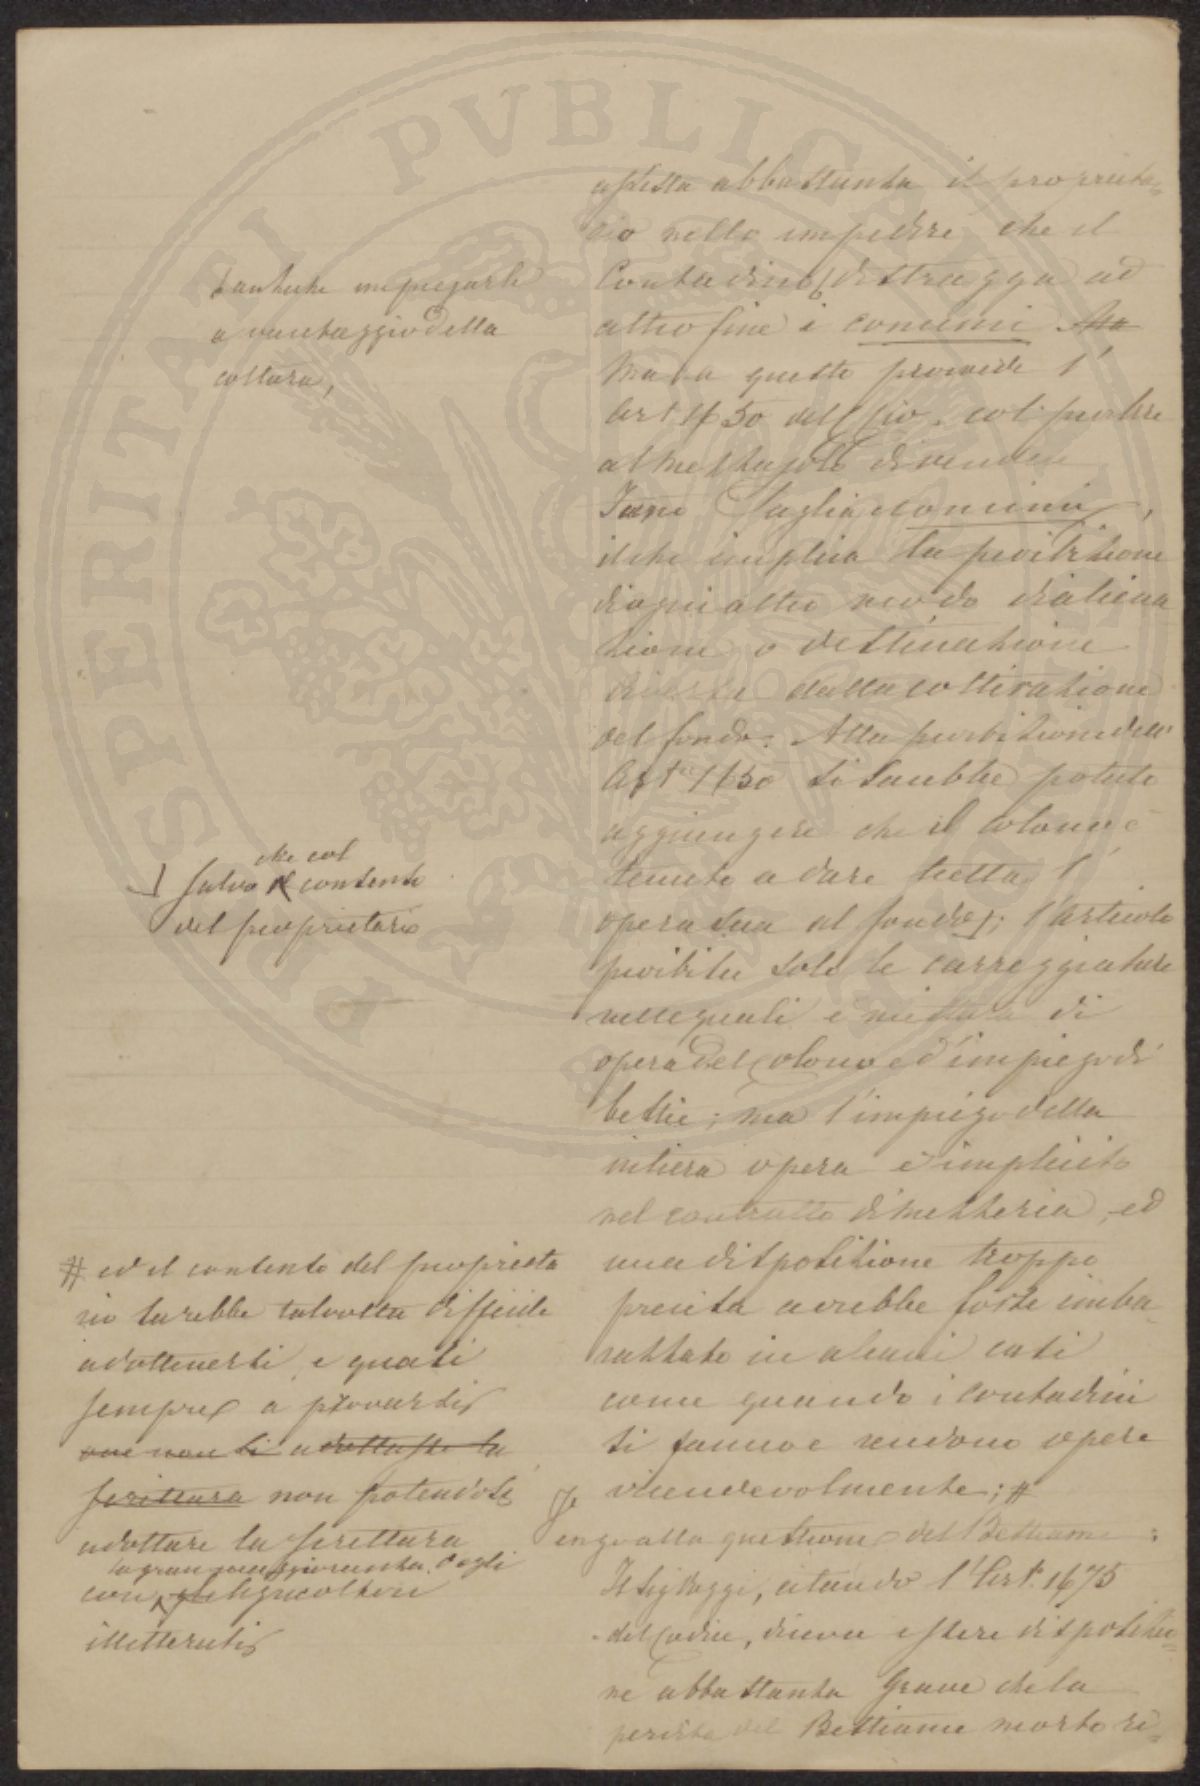 PROSPERITATI PVBLICAE
assista abbastanza il proprieta=
rio nello impedire che il
Contadino distragga ad
altro fine i concimi Ma
Ma a questo provvede l'
Art 1650 del Cod. col proibire
al mezzajolo di vendere
Fieno Paglia e concimi,
il che implica la proibizione
di ogni altro modo di aliena
zione o destinazione
diversa dalla coltivazione
del fondo. Alla proibizione dell'
Art 1650 si sarebbe potuto
aggiungere che il colono è
tenuto a dare tutta l'
opera sua al fondo; l'articolo
proibisce solo le carreggiature
nelle quali è mistura di
opera del Colono e d'impiego di
bestie; ma l'impiego della
intiera opera è implicito
nel contratto di mezzeria, ed
una disposizione troppo
precisa avrebbe forse imba
razzato in alcuni casi
come quando i contadini
si fanno e rendono opere
vicendevolmente; #
Vengo alla questione del Bestiame:
Il Sig Poggi, citando l'Art. 1675
del Codice, diceva essere disposizio=
ne abbastanza grave che la
perdita del Bestiame morto re=
anziché impiegarli
a vantaggio della
coltura,
che col
salvo il consenso
del proprietario
# ed il consenso del proprieta
rio sarebbe talvolta difficile
ad ottenersi, e quasi
sempre a provarsi
ove non si adottasse la
scrittura non potendosi
adottare la scrittura
la gran maggioranza degli
con gli agricoltori
illetterati